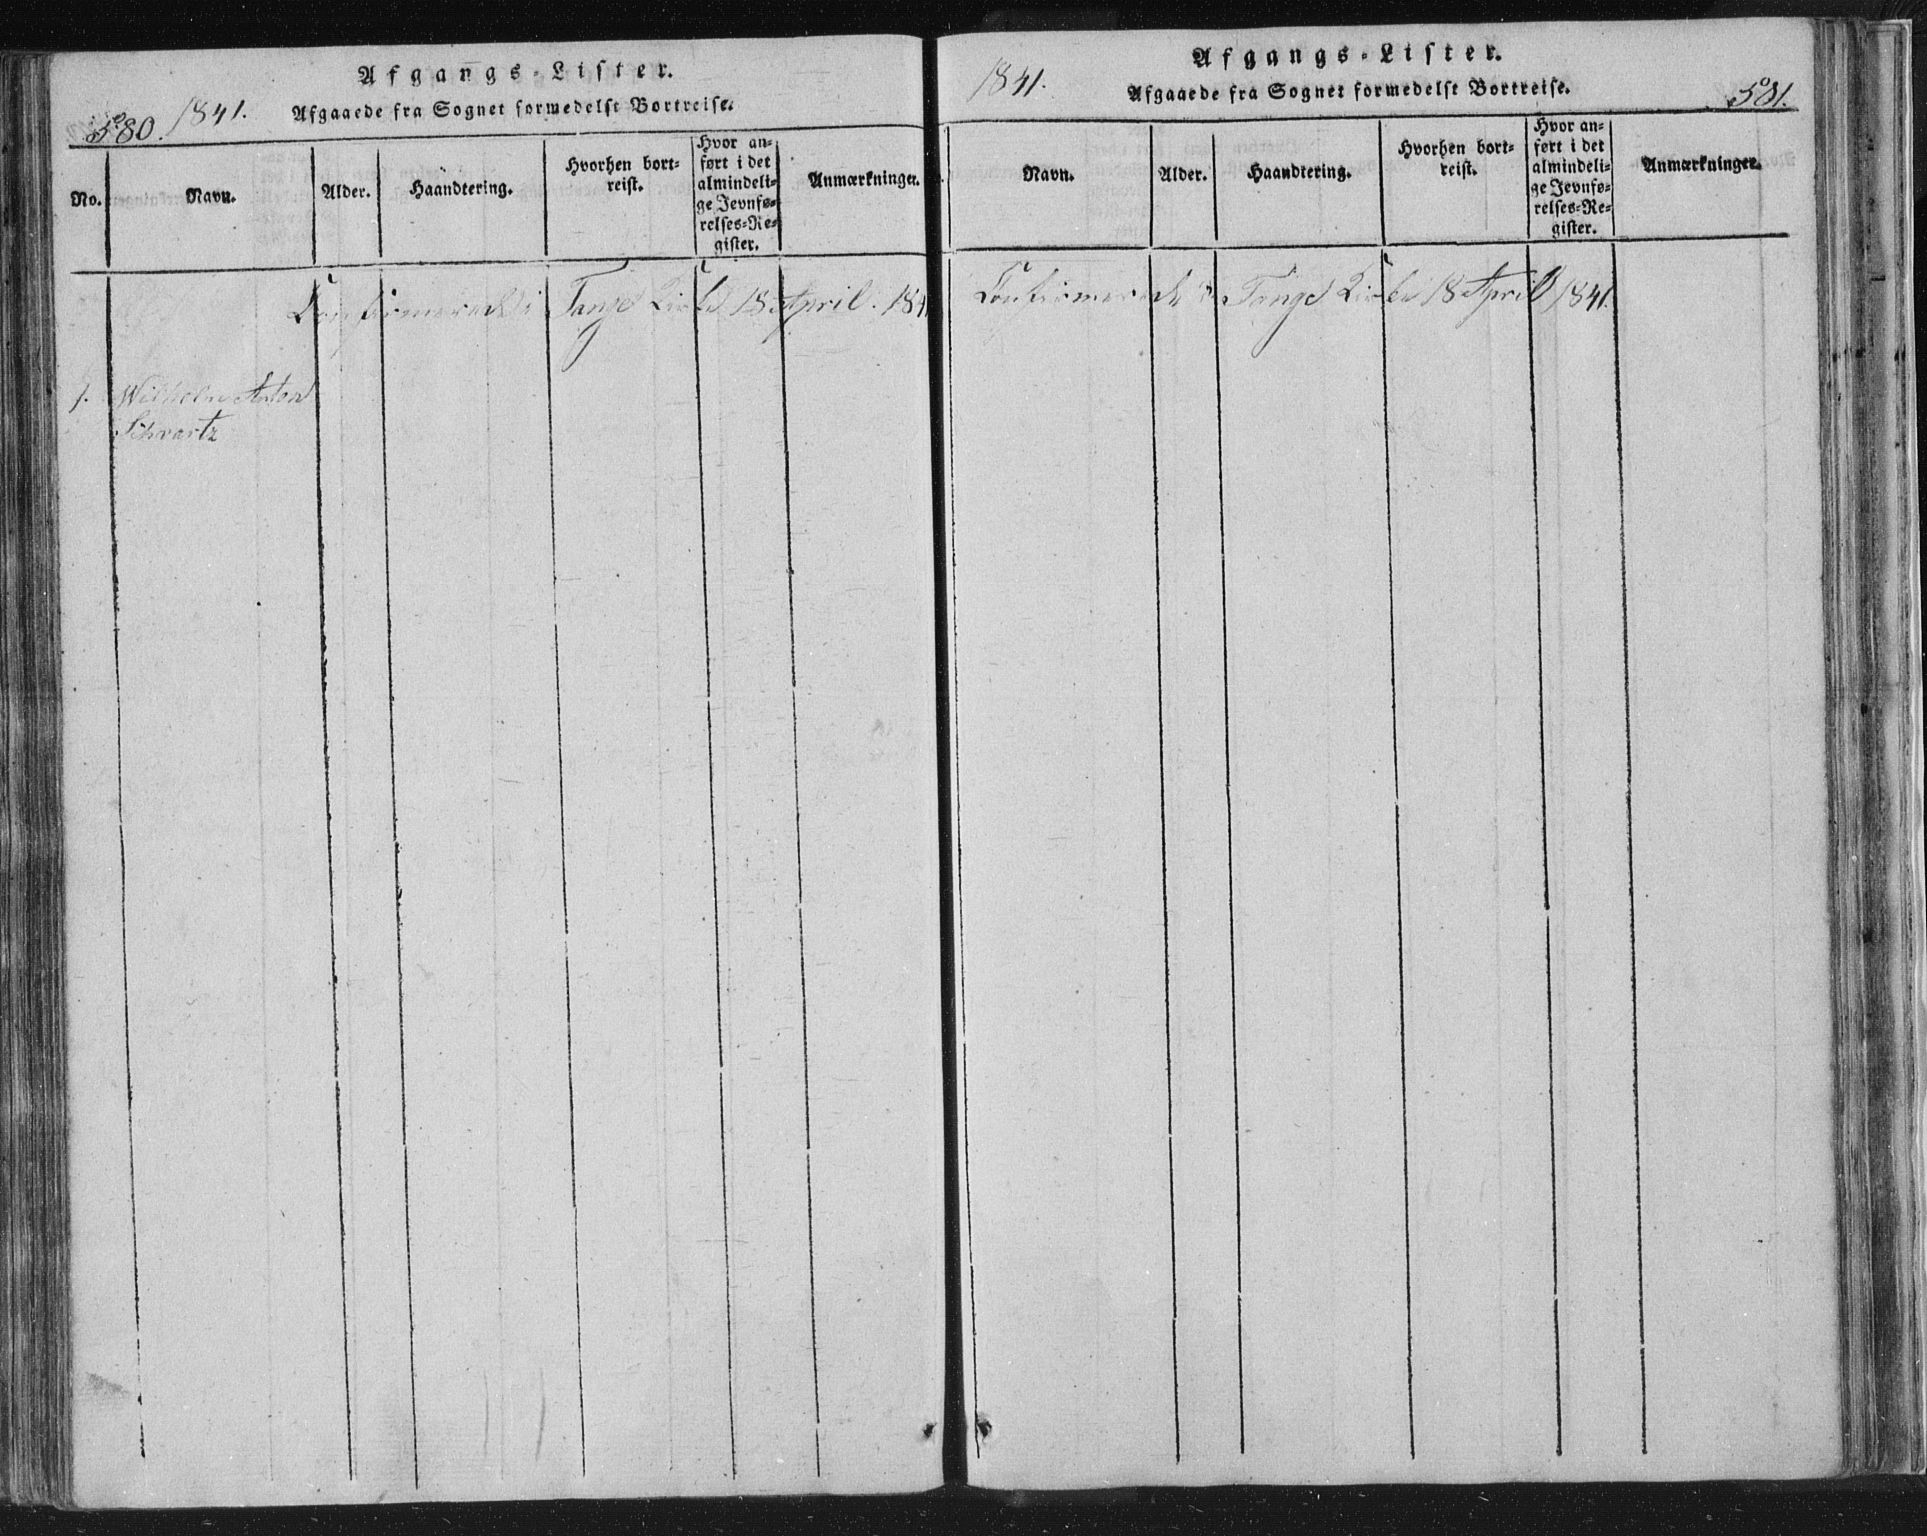 580.
1841.
Afgangs-Lister.
Afgaaede fra Sognet formedelst Bortreise.
No.
Navn.
Alder.
Haandtering.
Hvorhen bort-
reist.
Hvor an-
ført i det
almindeli-
ge Jevnfø-
relses-Re-
gister.
Anmærkninger.
Confirmerede i Tange Kirke 18 April. 184
1. Wilhelm Anton
Schvartz
1841.
Afgangs-Lister.
Afgaaede fra Sognet formedelst Bortreise.
581.
Navn.
Alder.
Haandtering.
Hvorhen bort-
reist.
Hvor an-
ført i det
almindeli-
ge Jevnfø-
relses-Re-
gister.
Anmærkninger.
Confirmerede i Tange Kirke 18 April 1841.